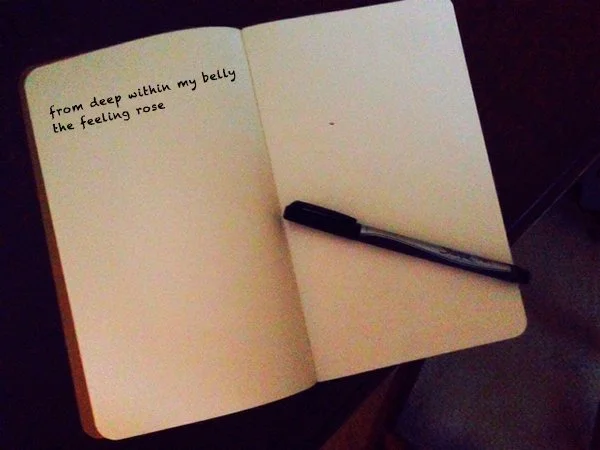 from deep within my belly
the feeling rose